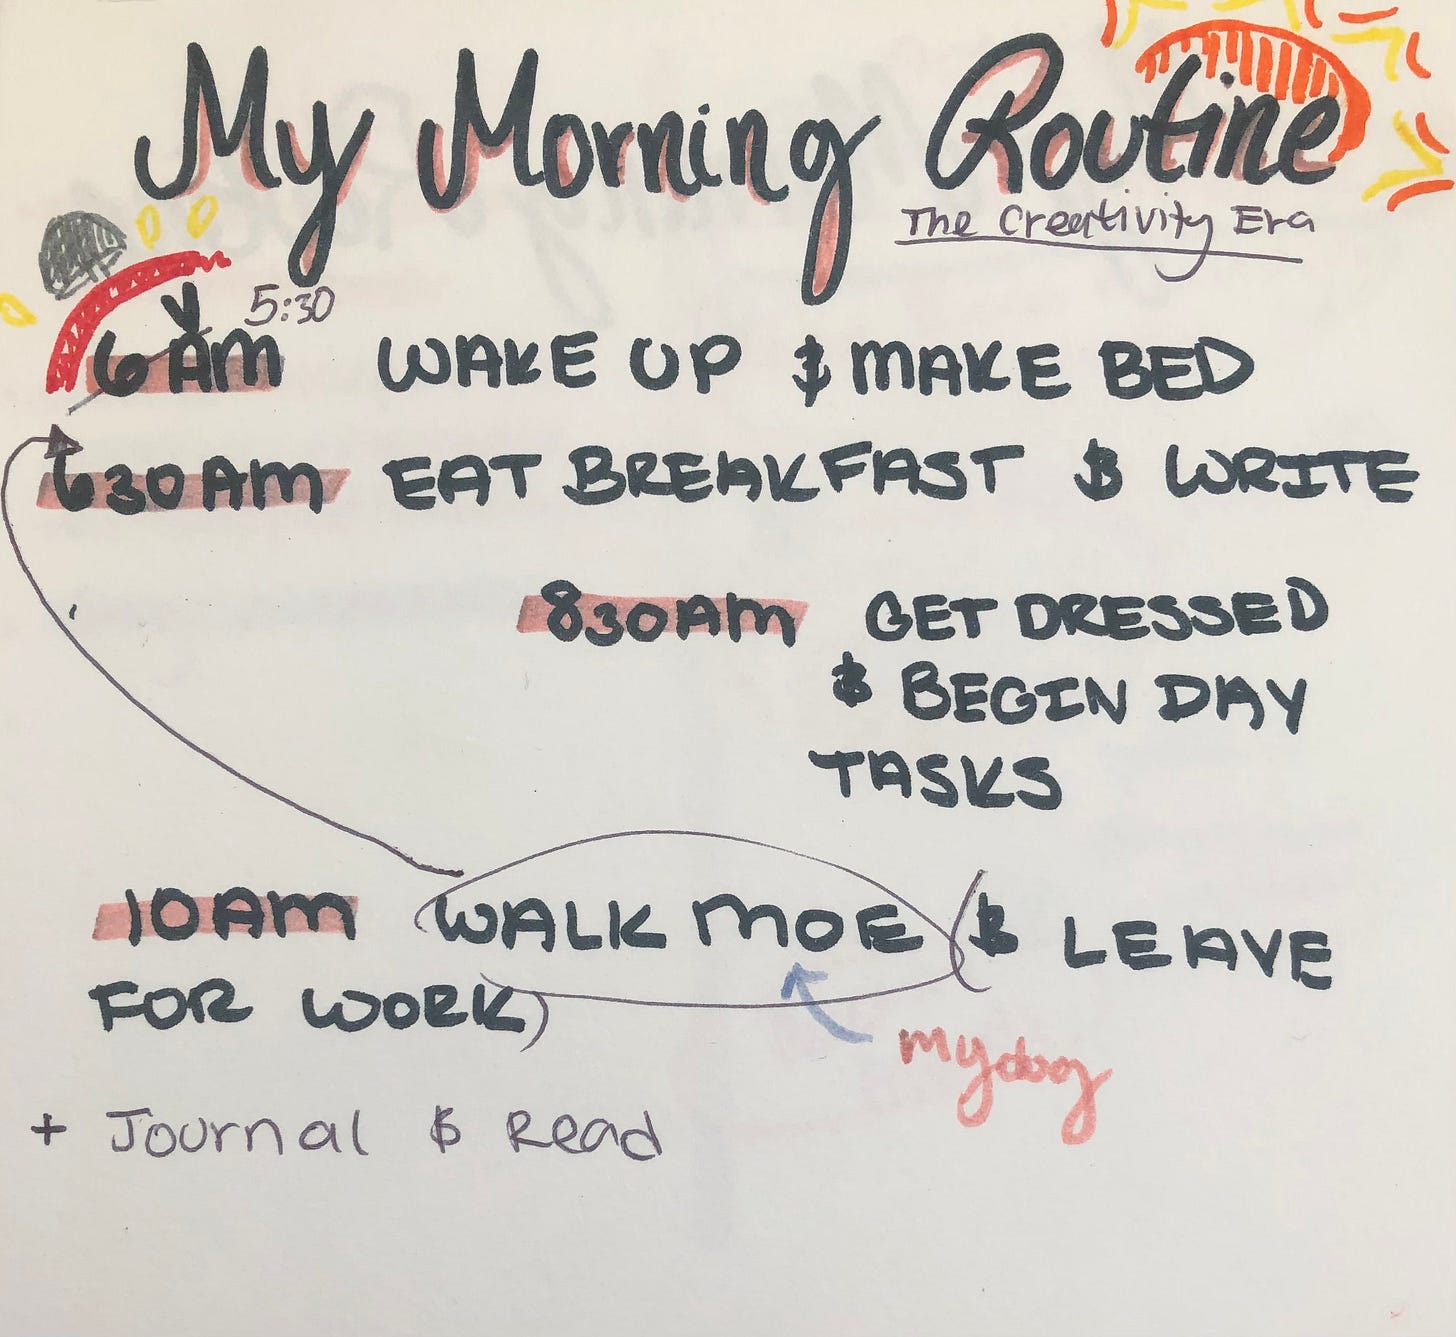 My Morning Routine
The Creativity Era
5:30
6 AM WAKE UP & MAKE BED
630 AM EAT BREAKFAST & WRITE
830 AM GET DRESSED
& BEGIN DAY
TASKS
10 AM WALK MOE (& LEAVE
FOR WORK)
my dog
+ Journal & Read